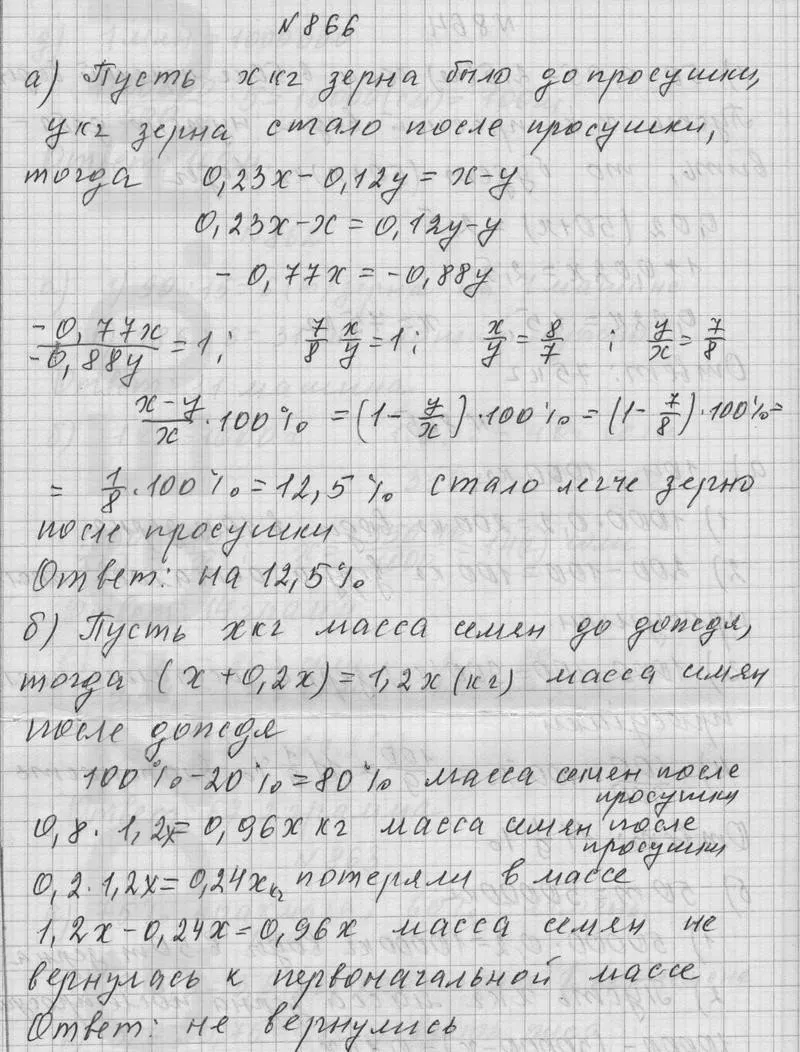 №866
а) Пусть x кг зерна было до просушки,
y кг зерна стало после просушки,
тогда 0,23x-0,12y=x-y
0,23x-x=0,12y-y
-0,77x=-0,88y
-0,77x/-0,88y=1; 7/8 x/y=1; x/y=8/7 ; y/x=7/8
x-y/x·100% =(1-y/x)·100%=(1-7/8)·100%=
= 1/8·100%=12,5% стало легче зерно
после просушки
Ответ: на 12,5%
б) Пусть x кг масса семян до дождя,
тогда (x+0,2x)=1,2x(кг) масса семян
после дождя
100%-20%=80% масса семен после просушки
0,8·1,2x=0,96x кг масса семян после просушки
0,2·1,2x=0,24x кг потеряли в массе
1,2x-0,24x=0,96x масса семян не
вернулась к первоначальной массе
Ответ: не вернулись